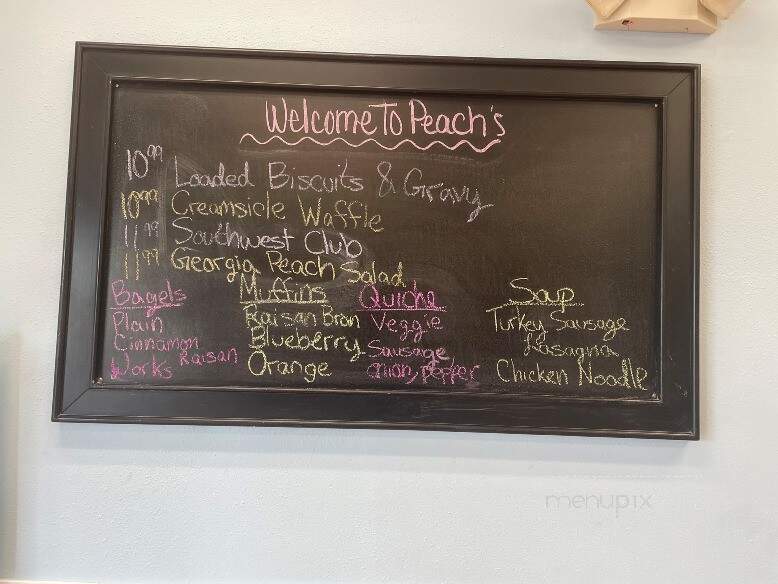 Welcome To Peach's
10⁹⁹ Loaded Biscuits & Gravy
10⁹⁹ Creamsicle Waffle
11⁹⁹ Southwest Club
11⁹⁹ Georgia Peach Salad
Bagels
Plain
Cinnamon
Raisan
Works
Muffins
Raisan Bran
Blueberry
Orange
Quiche
Veggie
Sausage,
onion, pepper
Soup
Turkey Sausage
Lasagna
Chicken Noodle
menupix